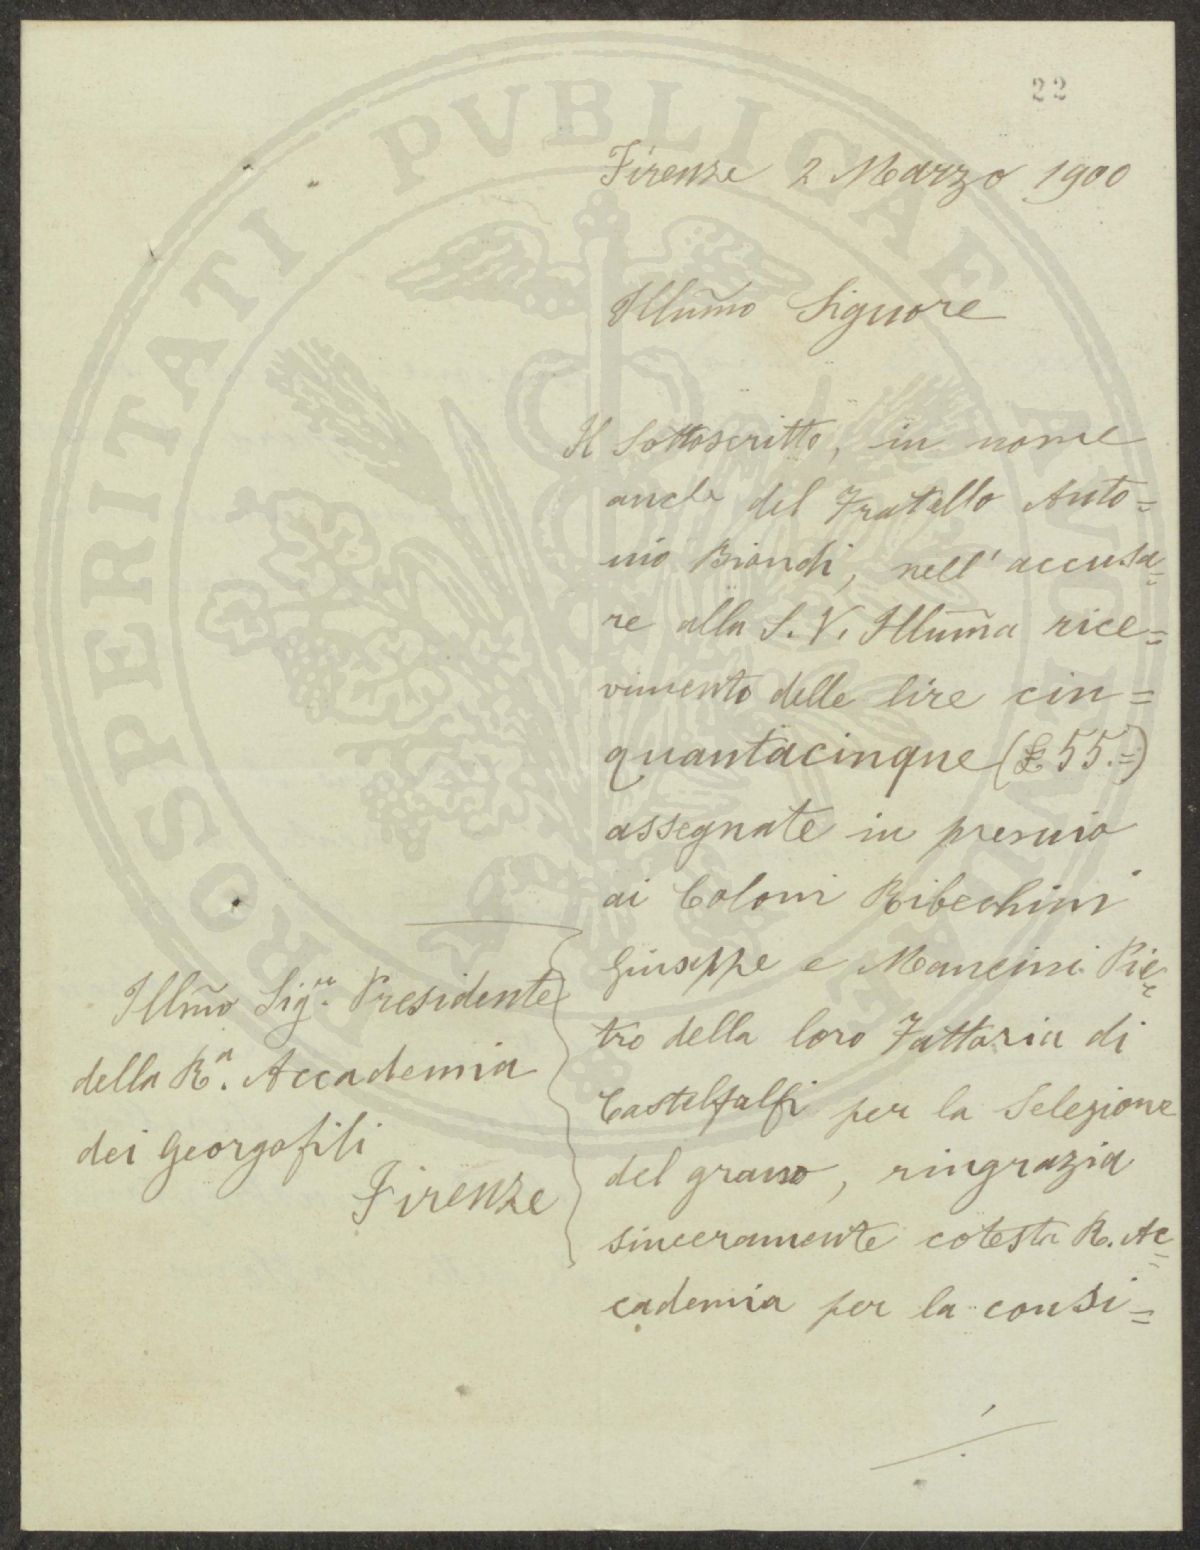 22
Firenze 2 Marzo 1900
Illūmo Signore
Il Sottoscritto, in nome
anche del Fratello Anto=
nio Biondi, nell'accusa=
re alla S. V. Illūma rice=
vimento delle lire cin=
quantacinque (£ 55.=)
assegnate in premio
ai Coloni Ribechini
Giuseppe e Mancini Pie=
tro della loro Fattoria di
Castelfalfi per la Selezione
del grano, ringrazia
sinceramente cotesta R. Ac=
cademia per la consi=
Illm̃o Sigr. Presidente
della Ra. Accademia
dei Georgofili
Firenze
PROSPERITATI PVBLICAE